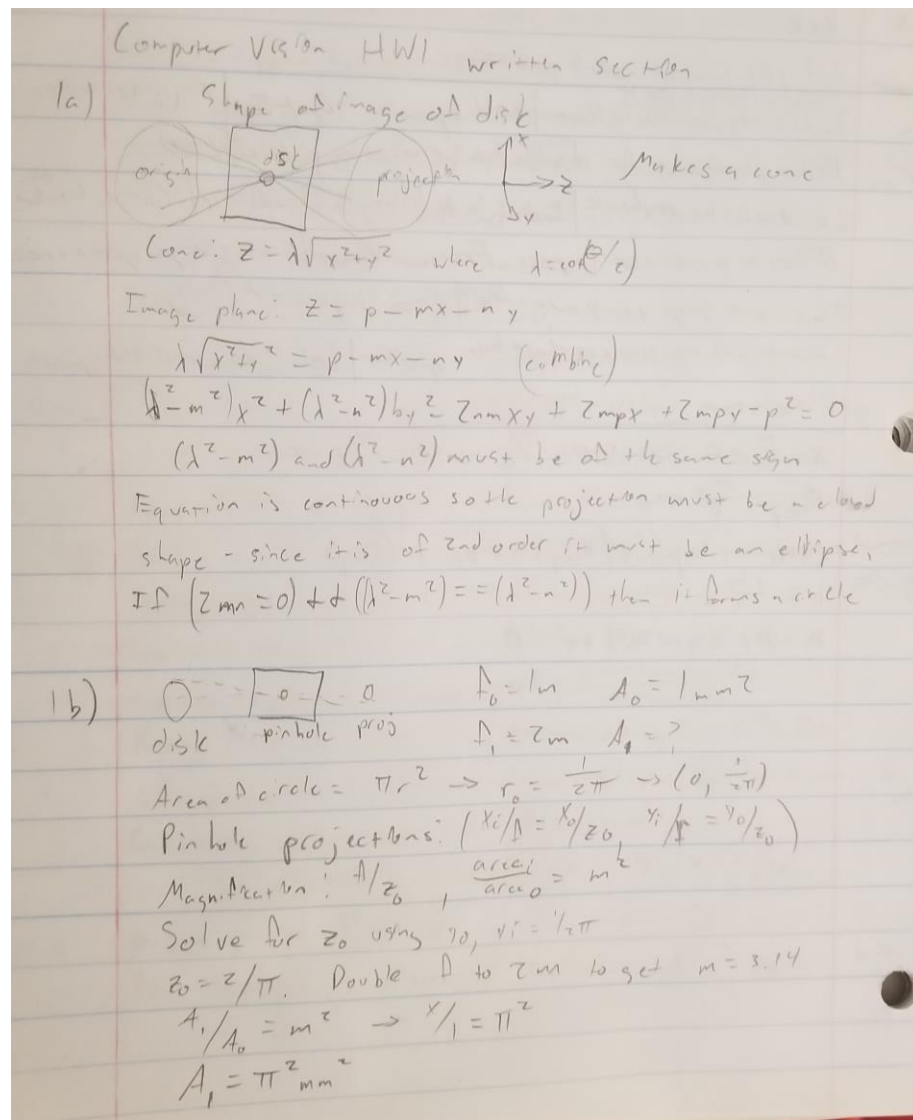 Computer Vision HW1 written section
1a) Shape of image of disk
origin disk projection x z y Makes a cone
Cone: z = λ√x²+y² where λ=cot(θ/2)
Image plane: z = p - mx - ny
λ√x²+y² = p - mx - ny (combine)
(λ²-m²)x² + (λ²-n²)by² - 2nmxy + 2mpx + 2mpy - p² = 0
(λ²-m²) and (λ²-n²) must be of the same sign
Equation is continuous so the projection must be a closed
shape - since it is of 2nd order it must be an ellipse.
If (2mn = 0) && ((λ²-m²) == (λ²-n²)) then it forms a circle
1b) f₀ = 1m A₀ = 1mm²
disk pinhole proj f₁ = 2m A₁ = ?
Area of circle = πr² → r₀ = 1/2π → (0, 1/2π)
Pinhole projections: (xi/f = x₀/z₀, yi/f = y₀/z₀)
Magnification: f/z₀, areai/area₀ = m²
Solve for z₀ using yi = 1/2π
z₀ = 2/π. Double f to 2m to get m = 3.14
A₁/A₀ = m² → x/1 = π²
A₁ = π² mm²